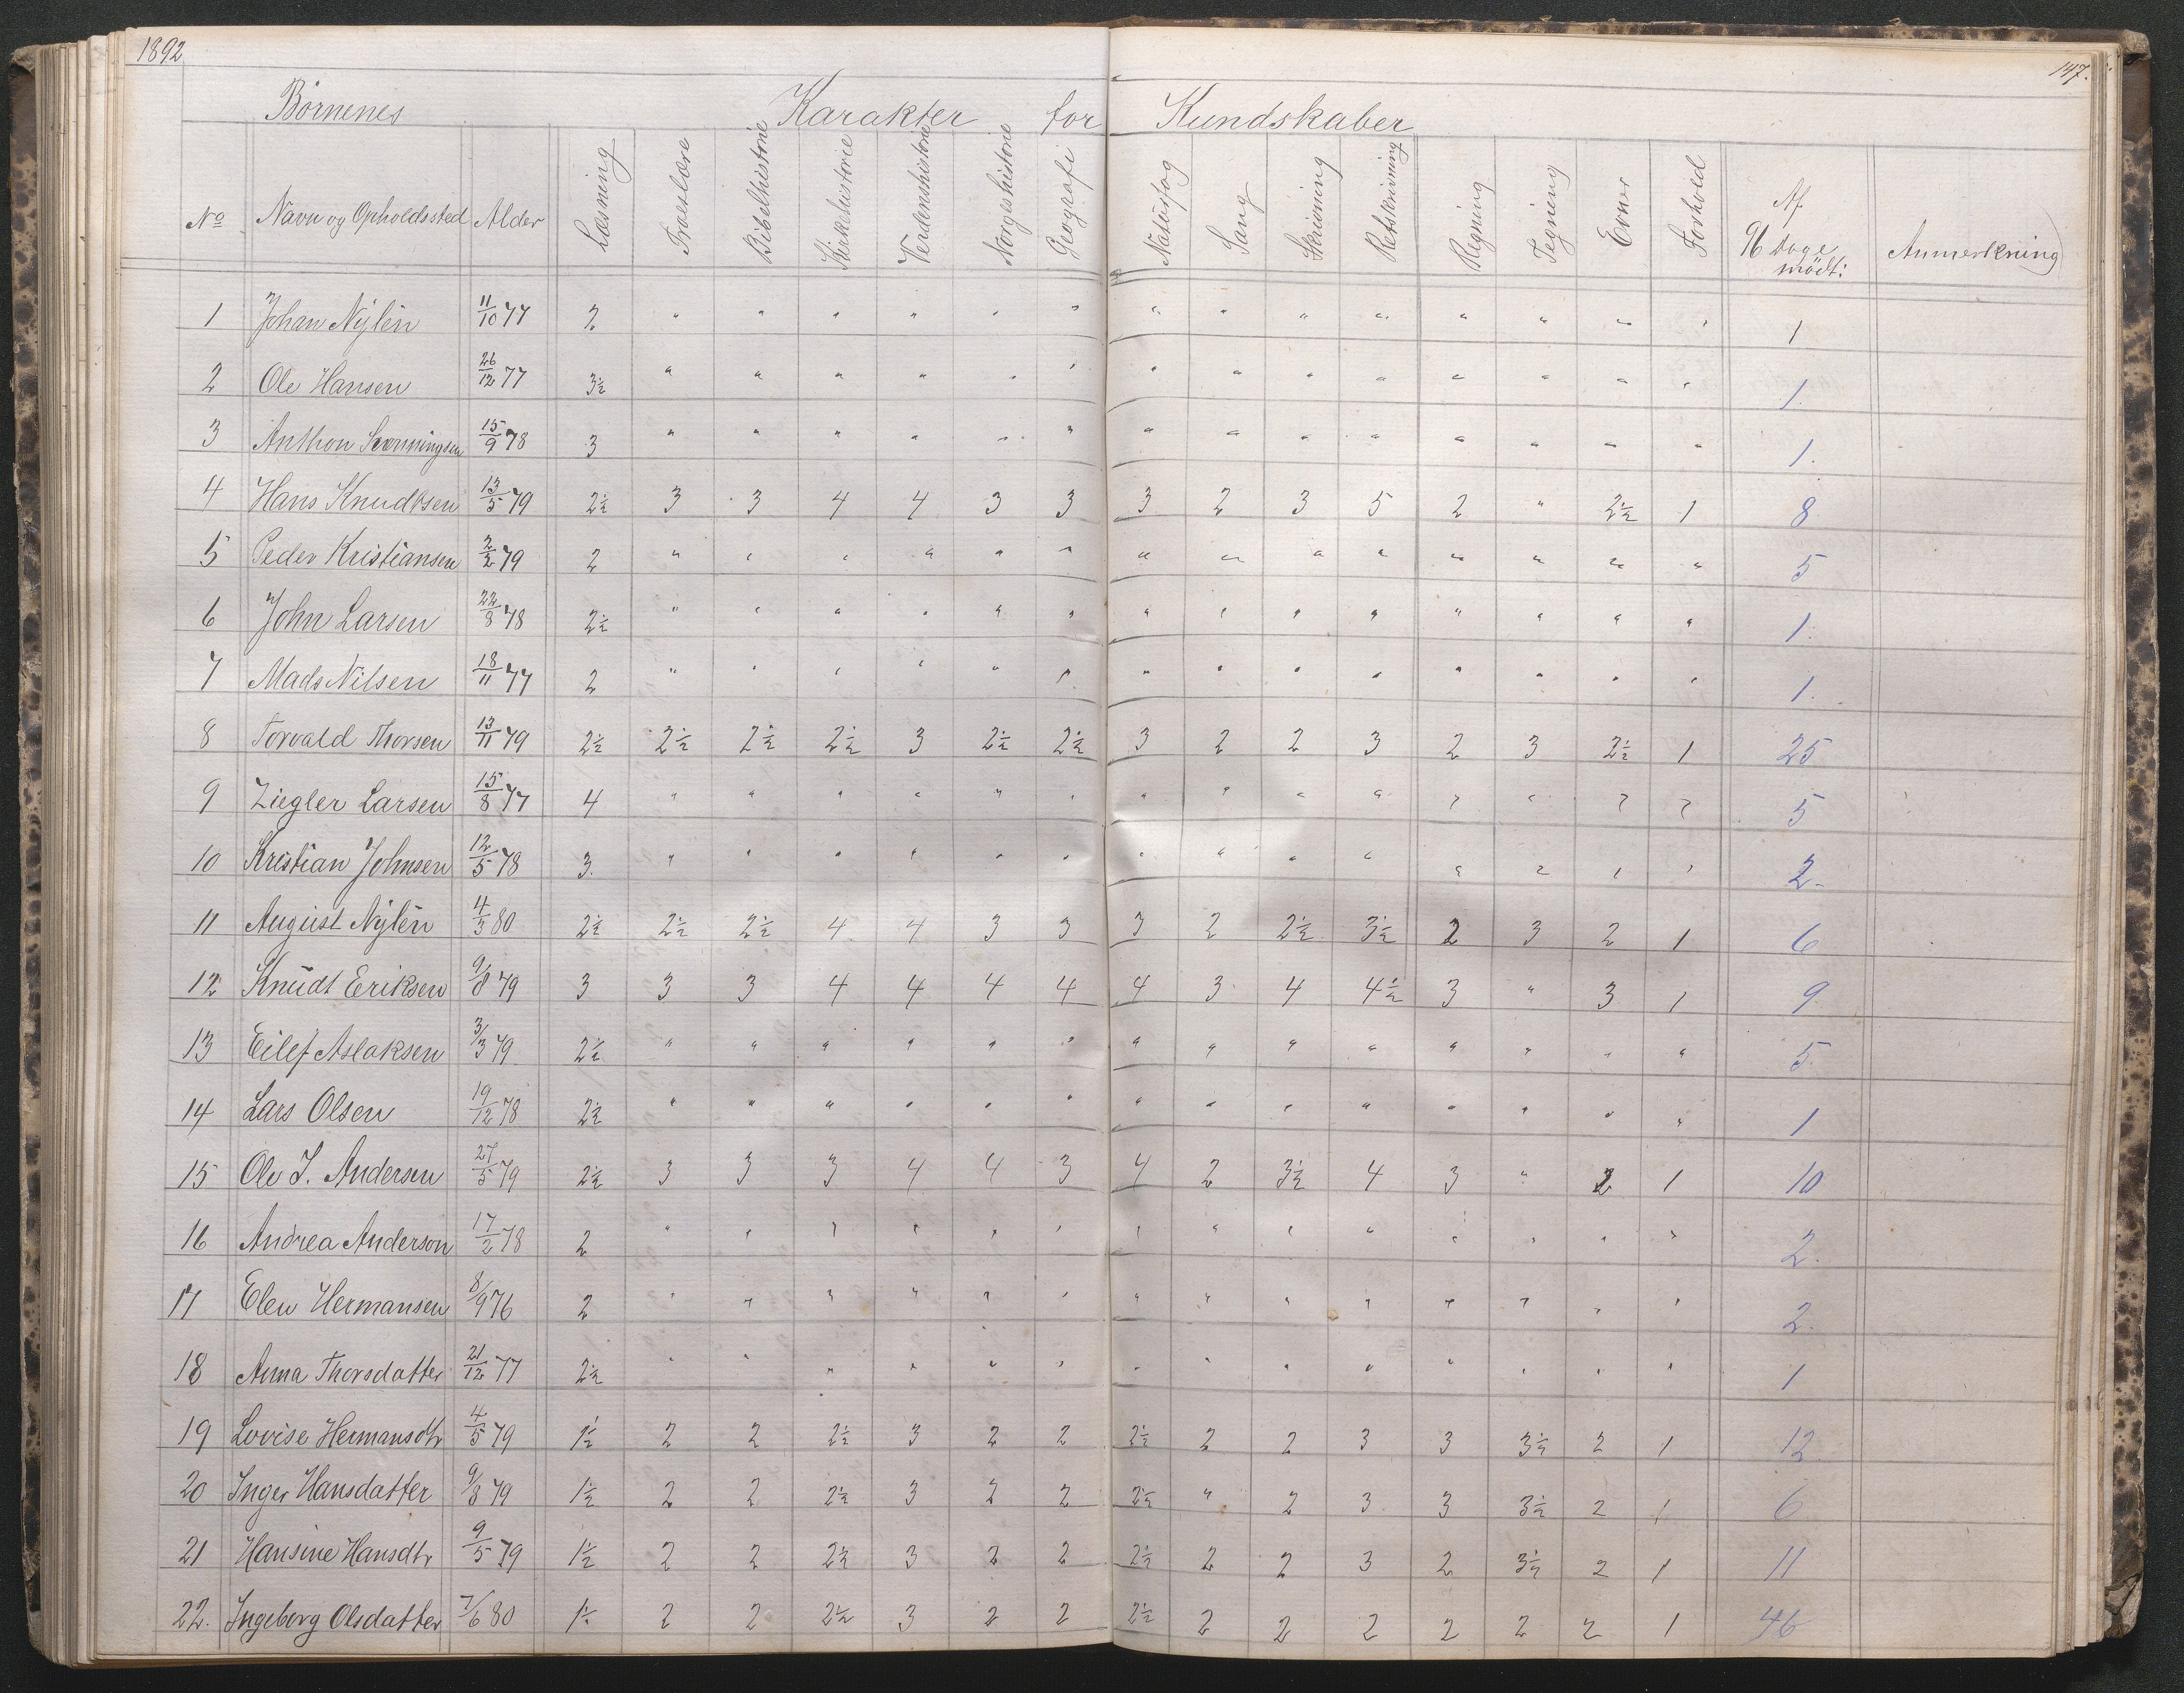 1892
147.
Børnenes Karakter for Kundskaber
No Navn og Opholdssted Alder Læsning Troeslære Bibelhistorie Kirkehistorie Verdenshistorie Norgeshistorie Geografi Naturfag Sang Skrivning Retskrivning Regning Tegning Evner Forhold Af 96 Dage mødt: Anmerkning
1 Johan Nylén 11/10 77 2 " " " " " " " " " " " " " " 1
2 Ole Hansen 26/12 77 3½ " " " " " " " " " " " " " " 1.
3 Anthon 15/9 78 3 " " " " " " " " " " " " " " 1.
4 Hans Knudtsen 13/5 79 2½ 3 3 4 4 3 3 3 2 3 5 2 " 2½ 1 8
5 Peder Kristiansen 2/2 79 2 " " " " " " " " " " " " " " 5
6 John Larsen 22/8 78 2½ " " " " " " " " " " " " " " 1.
7 Mads Nilsen 18/11 77 2 " " " " " " " " " " " " " " 1.
8 Torvald Thorsen 13/11 79 2½ 2½ 2½ 2½ 3 2½ 2½ 3 2 2 3 2 3 2½ 1 25
9 Ziegler Larsen 15/8 77 4 " " " " " " " " " " " " " " 5
10 Kristian Johnsen 12/5 78 3. " " " " " " " " " " " " " " 2.
11 August Nylén 4/3 80 2½ 2½ 2½ 4 4 3 3 3 2 2½ 3½ 2 3 2 1 6
12 Knudt Eriksen 9/8 79 3 3 3 4 4 4 4 4 3 4 4½ 3 " 3 1 9.
13 Eilef Aslaksen 3/3 79 2½ " " " " " " " " " " " " " " 5.
14 Lars Olsen 19/12 78 2½ " " " " " " " " " " " " " " 1
15 Ole J. Andersen 27/5 79 2½ 3 3 3 4 4 3 4 2 3½ 4 3 " 2 1 10
16 Andrea Anderson 17/2 78 2 " " " " " " " " " " " " " " 2.
17 Elen Hermansen 8/9 76 2 " " " " " " " " " " " " " " 2.
18 Anna Thorsdatter 21/12 77 2½ " " " " " " " " " " " " " " 1
19 Lovise Hermansdtr 4/5 79 1½ 2 2 2½ 3 2 2 2½ 2 2 3 3 3½ 2 1 12.
20 Inger Hansdatter 9/8 79 1½ 2 2 2½ 3 2 2 2½ " 2 3 3 3½ 2 1 6
21 Hansine Hansdtr 9/5 79 1½ 2 2 2½ 3 2 2 2½ 2 2 3 2 3½ 2 1 11
22. Ingeborg Olsdatter 7/6 80 1½ 2 2 2½ 3 2 2 2½ 2 2 2 2 2 2 1 46